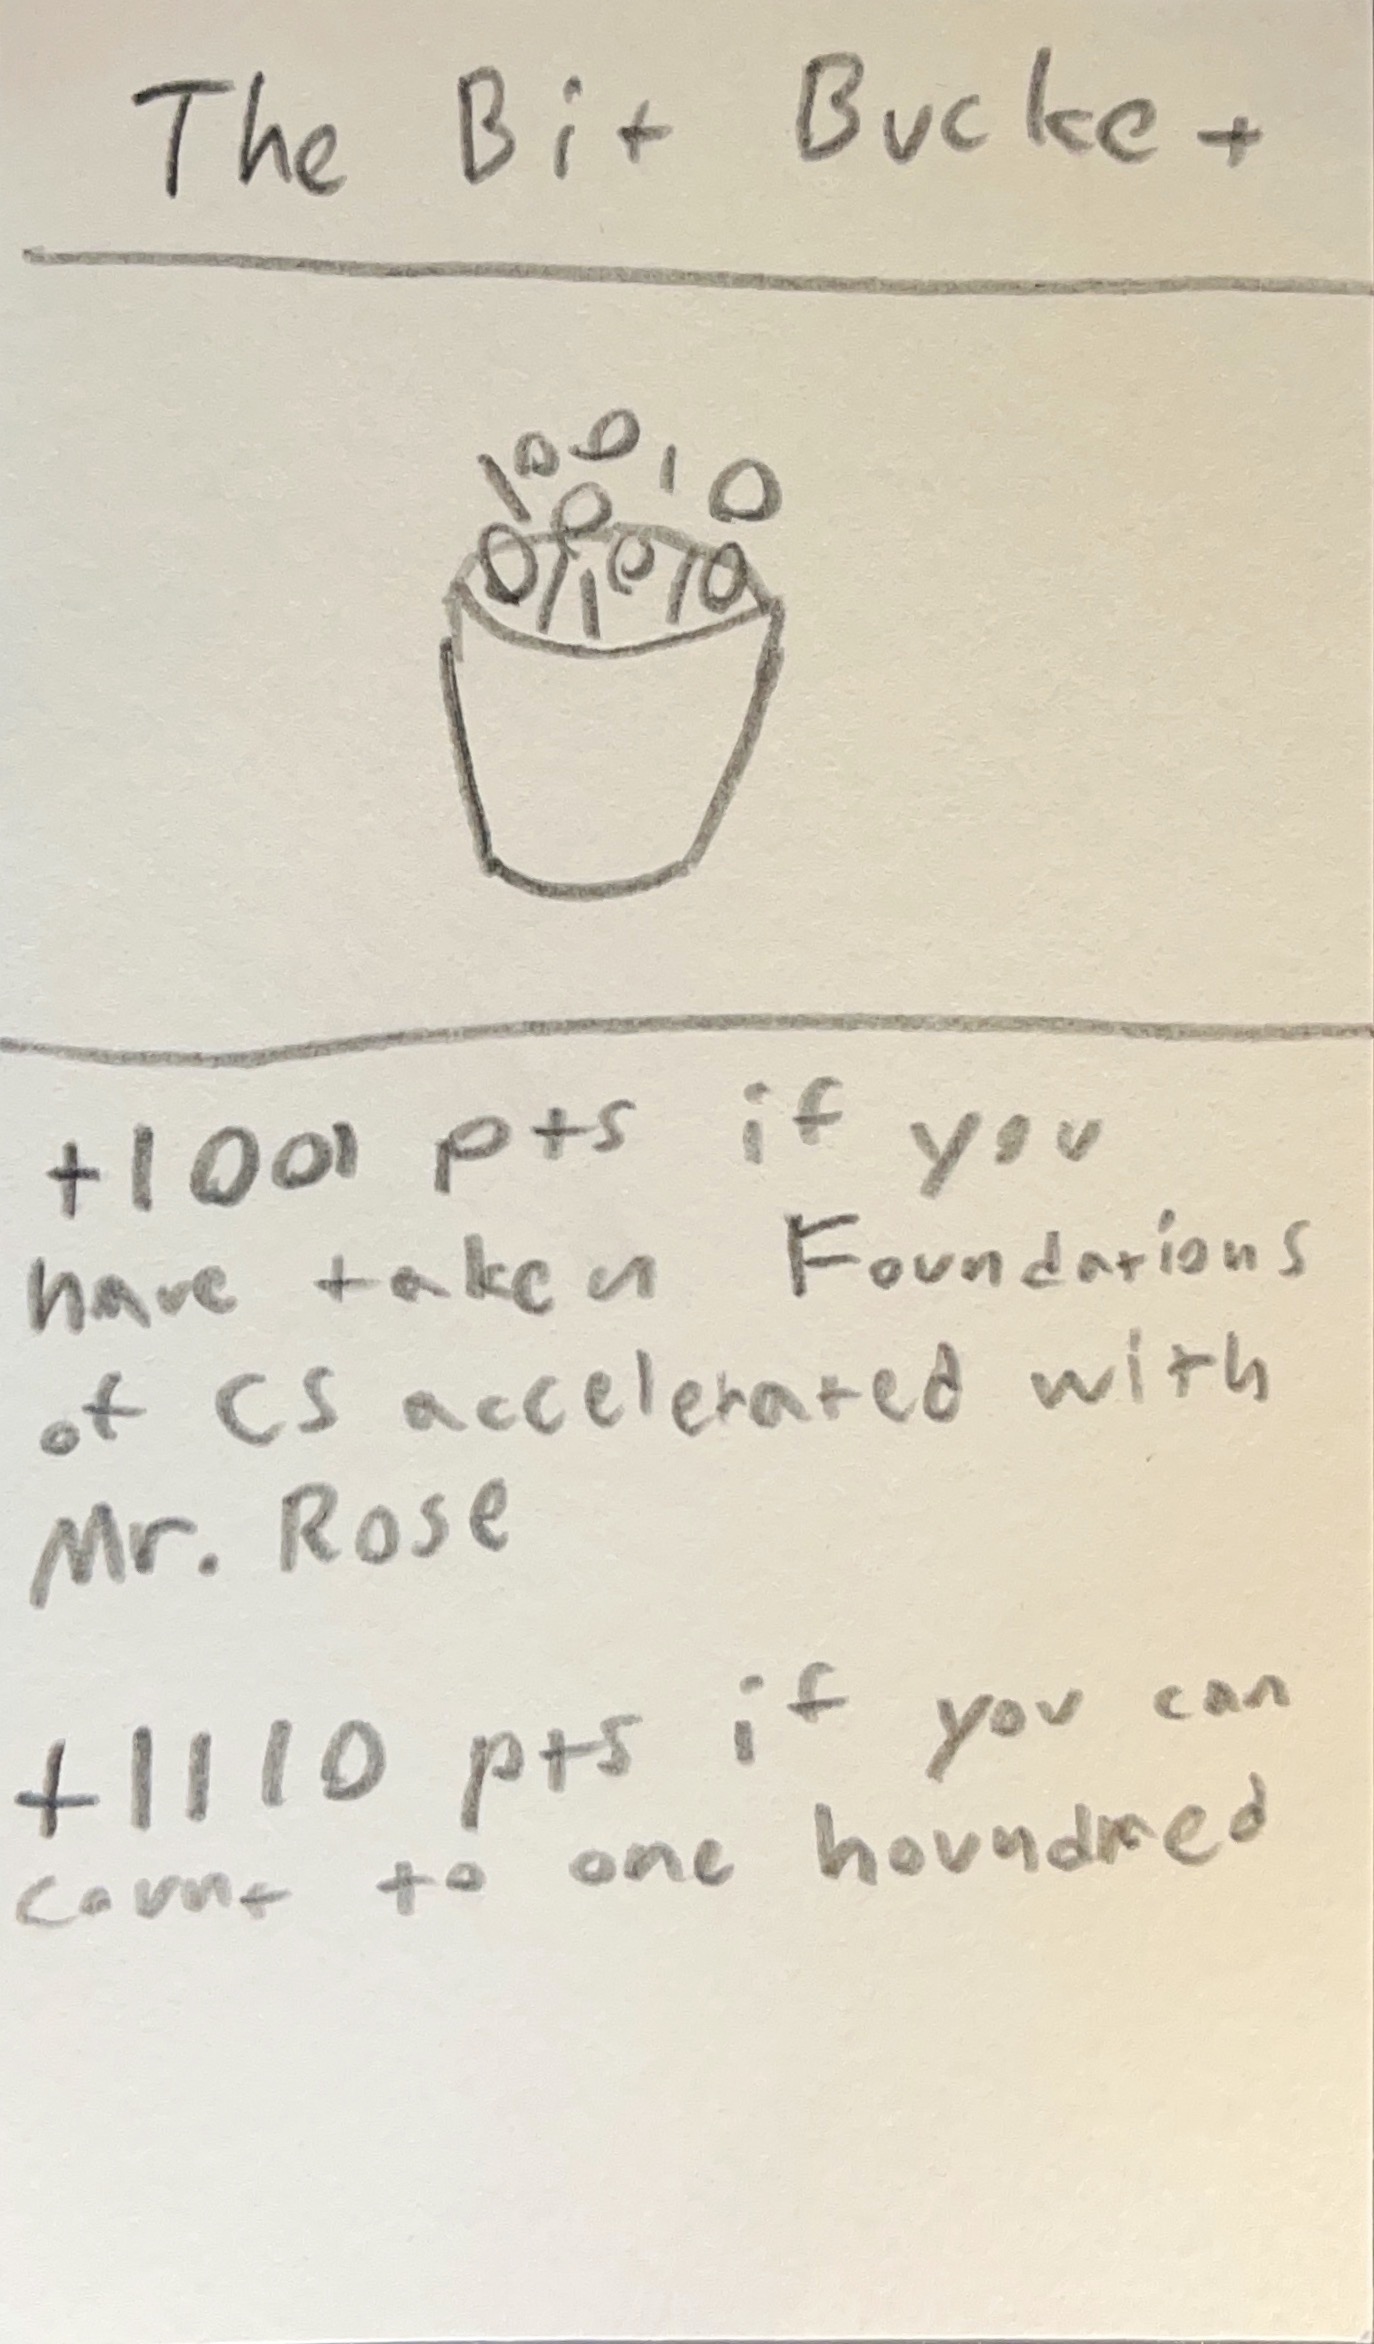 The Bit Bucket
+1001 pts if you
have taken Foundations
of CS accelerated with
Mr. Rose
+1110 pts if you can
count to one houndred